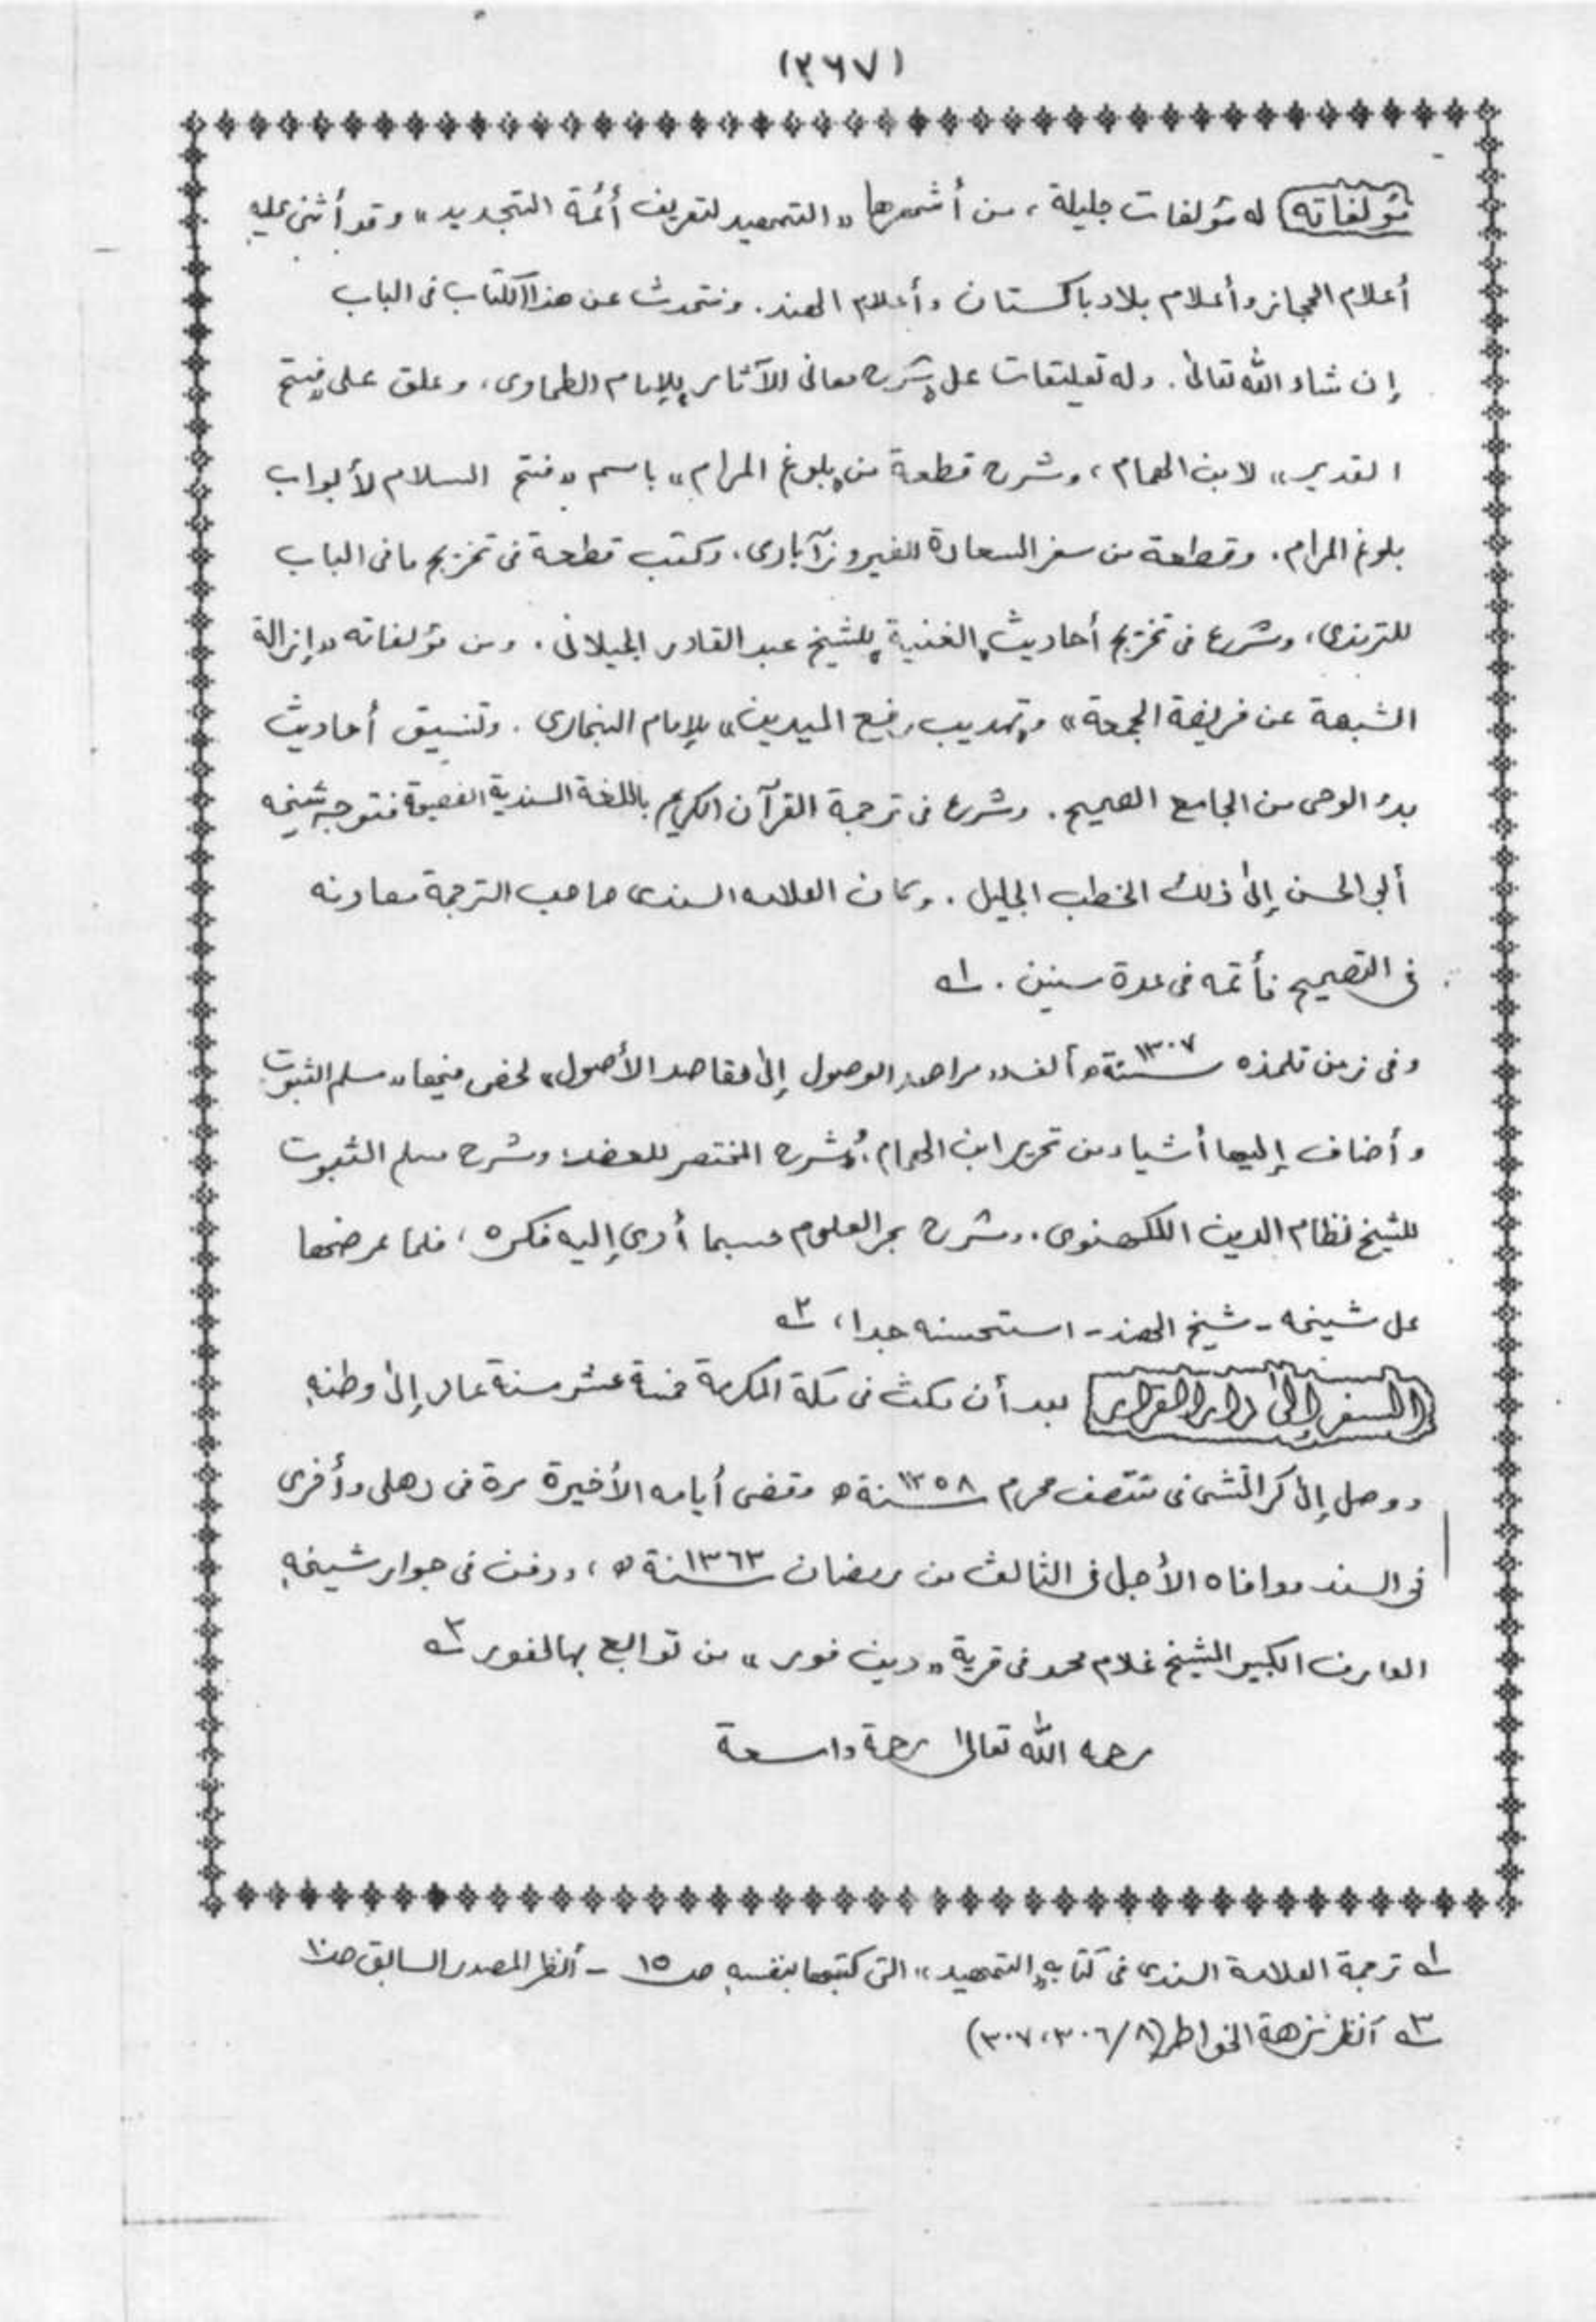 (٣٦٧)
مؤلفاته له مؤلفات جليلة، من أشهرها «التمهيد لتعريف أئمة التجديد» وقد أثنى عليه
أعلام الحجاز وأعلام بلاد باكستان وأعلام الهند. ونتحدث عن هذا الكتاب فى الباب
إن شاء الله تعالى. وله تعليقات على «شرح معانى الآثار» للإمام الطحاوى، وعلق على «فتح
القدير» لابن الهمام، وشرح قطعة من «بلوغ المرام» باسم «فتح السلام لأبواب
بلوغ المرام. وقطعة من سفر السعادة للفيروزآبادى، وكتب قطعة فى تخريج ما فى الباب
للترمذى، وشرع فى تخريج أحاديث «الغنية» للشيخ عبد القادر الجيلانى. ومن مؤلفاته «إزالة
الشبهة عن فريضة الجمعة» و«تهذيب رفع اليدين» للإمام البخارى. وتنسيق أحاديث
بدء الوحى من الجامع الصحيح. وشرع فى ترجمة القرآن الكريم باللغة السندية الفصيحة فتوجه شيخه
أبى الحسن إلى ذلك الخطب الجليل. وكان العلامه السندى صاحب الترجمة معاونه
فى التصحيح فأتمه فى عدة سنين. ١ه
وفى زمن تلمذه سنة ١٣٠٧ه ألف «مراصد الوصول إلى مقاصد الأصول» لخص فيها «مسلم الثبوت
وأضاف إليها أشياء من تحرير ابن الهمام، وشرح المختصر للعضد، وشرح مسلم الثبوت
للشيخ نظام الدين اللكهنوى. وشرح بحر العلوم حسبما أدى إليه فكره، فلما عرضها
على شيخه - شيخ الهند - استحسنه جدا، ٢ه
السفر إلى دار القرار بعد أن مكث فى مكة المكرمة خمسة عشر سنة عاد إلى وطنه
ووصل إلى كراتشى فى منتصف محرم سنة ١٣٥٨ه وقضى أيامه الأخيرة مرة فى دهلى وأخرى
فى السند ووافاه الأجل فى الثالث من رمضان سنة ١٣٦٣ه، ودفن فى جوار شيخه
العارف الكبير الشيخ غلام محمد فى قرية «دين فور» من توابع بهالفور ٣ه
رحمه الله تعالى رحمة واسعة
١ه ترجمة العلامة السندى فى كتابه «التمهيد» التى كتبها بنفسه ص ١٥ - أنظر المصدر السابق ص١٠
٣ه أنظر نزهة الخواطر (٨/ ٣٠٦، ٣٠٧)